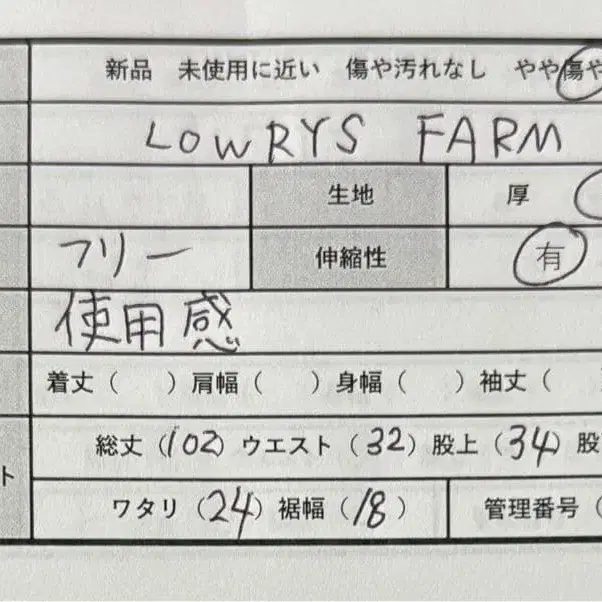 新品 未使用に近い 傷や汚れなし やや傷や
LOWRYS FARM
生地 厚
フリー 伸縮性 有
使用感
着丈（ ）肩幅（ ）身幅（ ）袖丈（
総丈（102）ウエスト（32）股上（34）股
ト
ワタリ（24）裾幅（18） 管理番号（